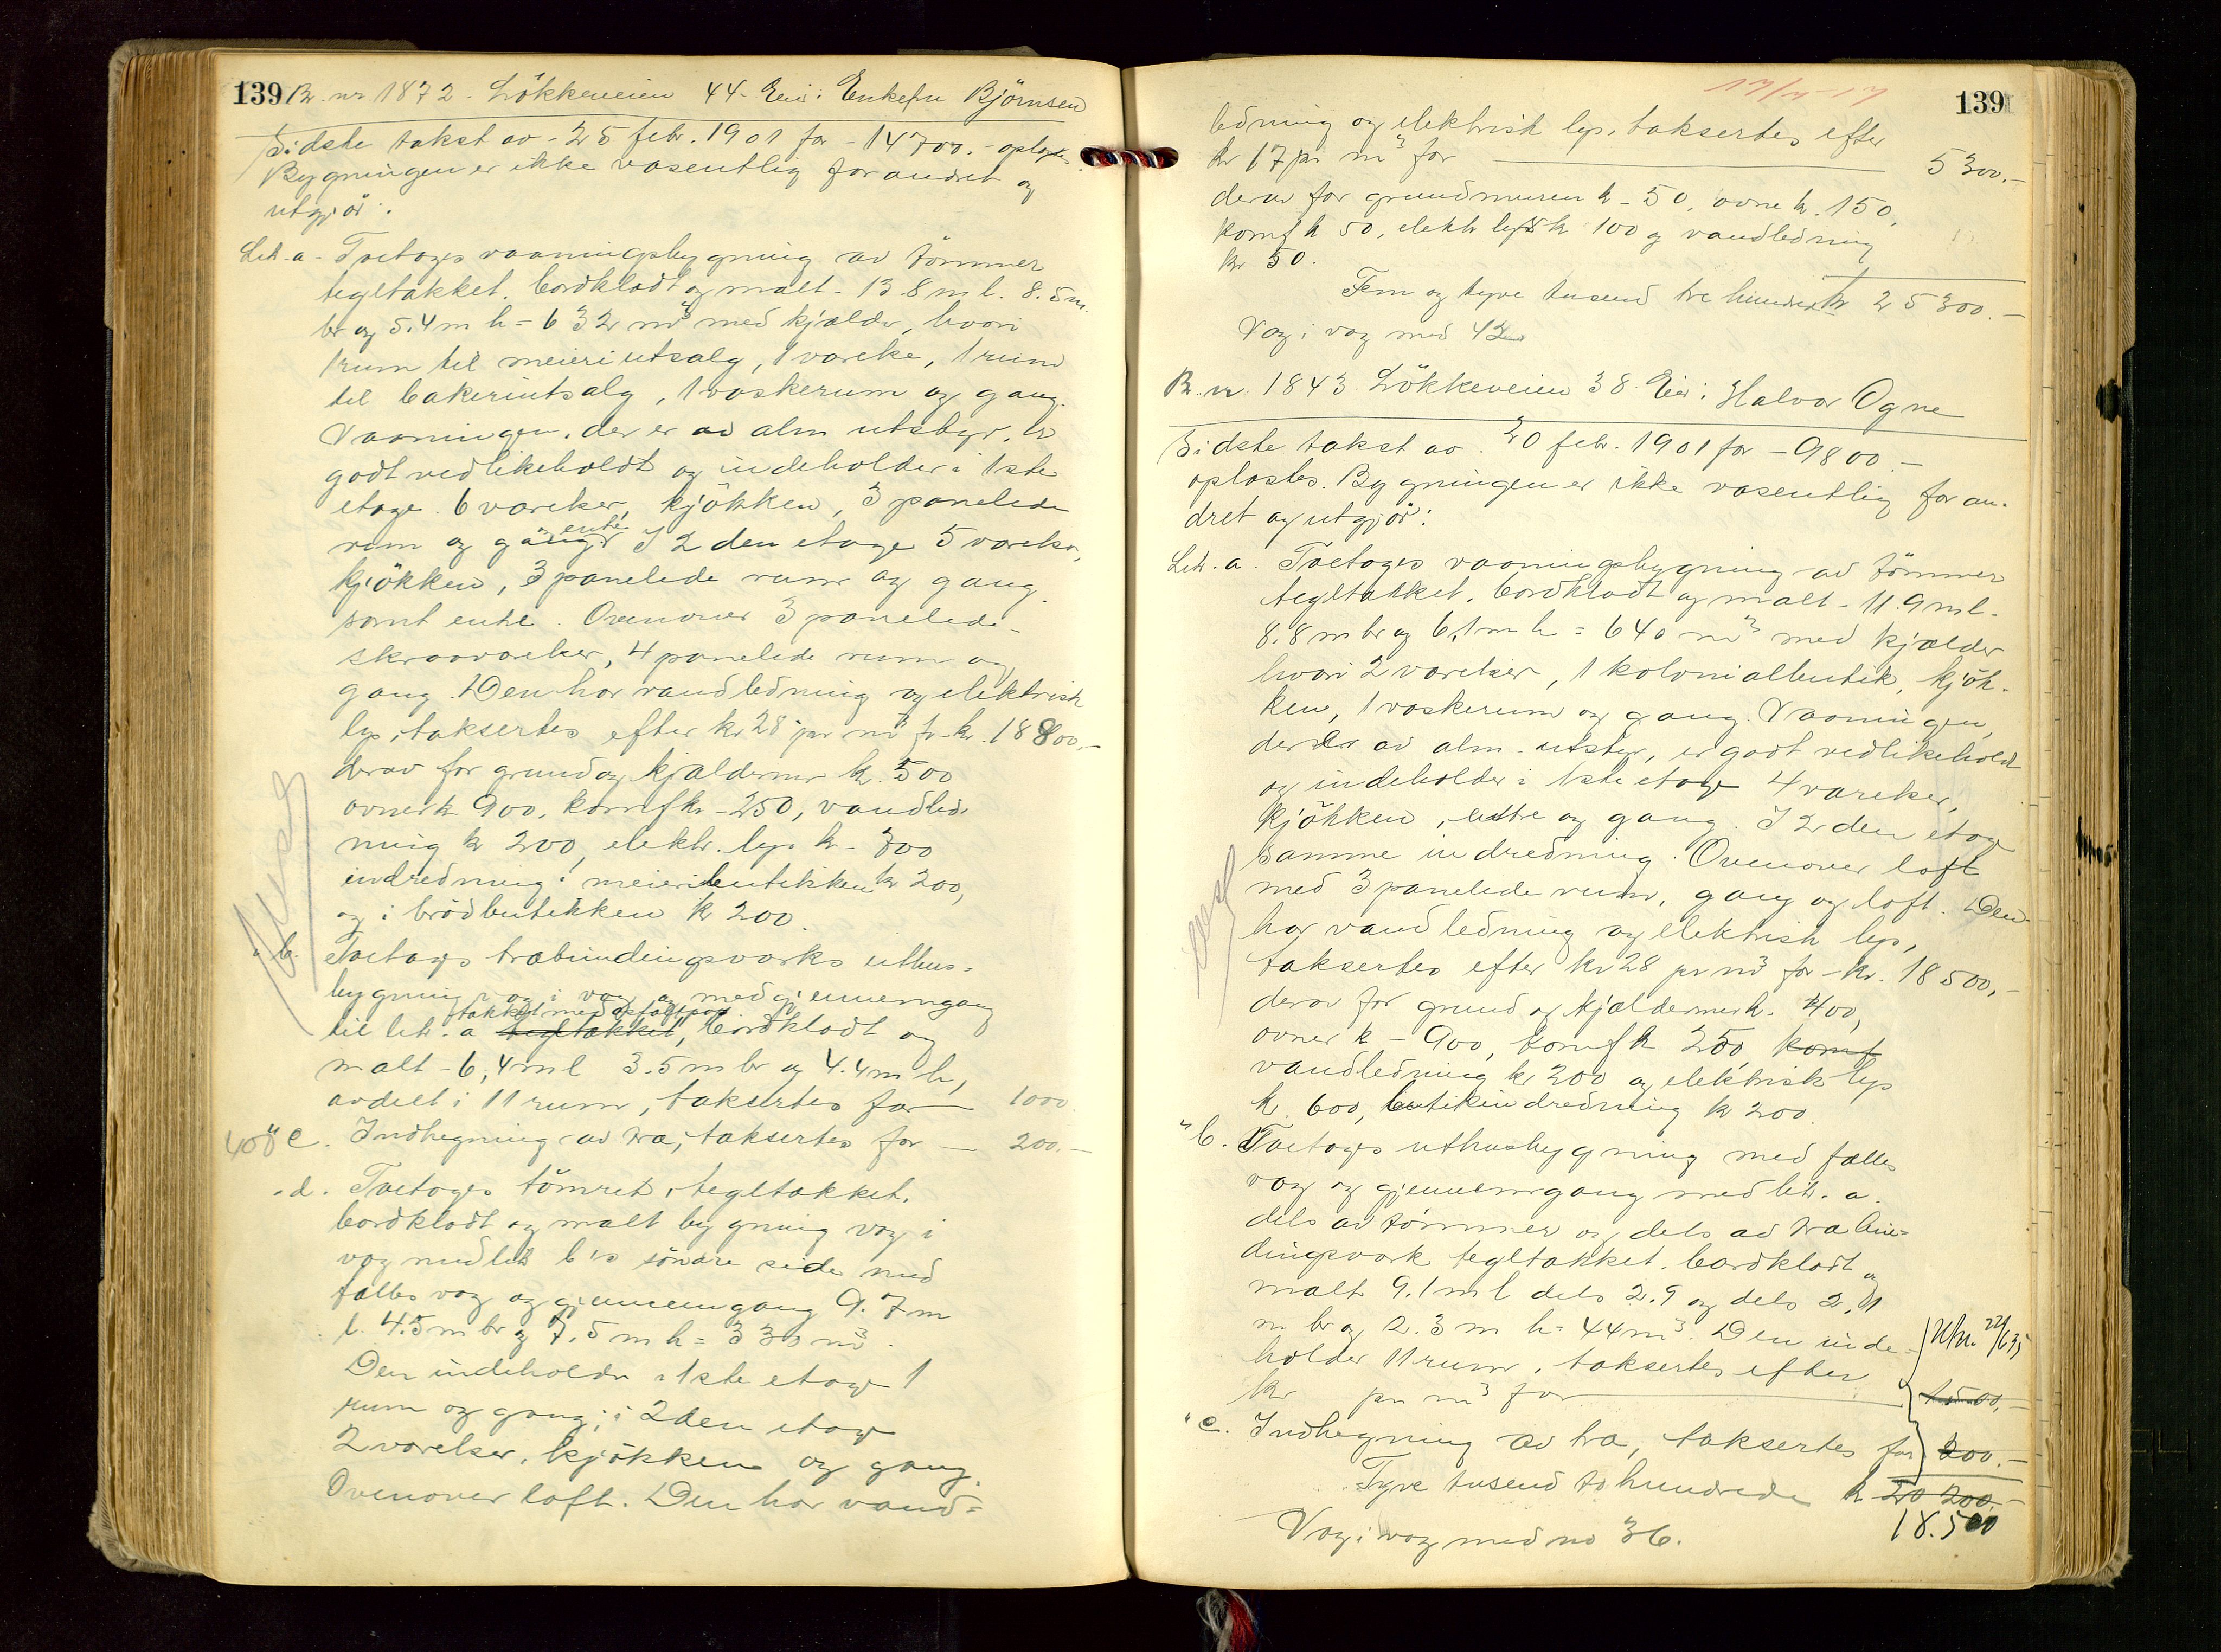 139 Br. nr. 1872. Lökkeveien 44. Eier: Enkefru Björnsen
Sidste takst av - 25 febr. 1901 for - 14700.- oplöstes.
Bygningen er ikke væsentlig forandret og
utgjör:
Litr. a - Toetages vaaningsbygning av tömmer
tegltækket, bordklædt og malt - 13.8 m l. 8.5 m
br og 5.4 m h = 632 m³ med kjælder, hvori
1 rum til meieriutsalg, 1 værelse, 1 rum
til bakeriutsalg, 1 vaskerum og gang.
Vaaningen, der er av alm utstyr, er
godt vedlikeholdt og indeholder i 1ste
etage 6 værelser, kjökken, 3 panelede
rum og gang og entre. I 2den etage 5 værelser,
kjökken, 3 panelede rum og gang
samt entre. Ovenover 3 panelede
skraaværelser, 4 panelede rum og
gang. Den har vandledning og elektrisk
lys, taksertes efter kr 28 pr m³ for kr. 18800,-
derav for grund og kjældermur kr. 500
ovner kr 900, komf kr - 250, vandled-
ning kr 200, elektr. lys kr - 300
indredning i meieributikken kr 200,
og i brödbutikken kr 200.
" b. Toetages træbindingsværks uthus-
bygning væg i væg og med gjennemgang
til litr. a tegltækket, takket med asfaltpap bordklædt og
malt - 6,4 m l 3.5 m br og 4.4 m h,
avdelt i 11 rum, taksertes for 1000.
400 " c. Indhegning av træ, taksertes for 200.-
" d. Toetages tömret, tegltækket,
bordklædt og malt bygning væg i
væg med litr b's söndre side med
fælles væg og gjennemgang 9.7 m
l. 4.5 m br og 7.5 m h = 330 m³.
Den indeholder i 1ste etage 1
rum og gang; i 2den etage
2 værelser, kjökken og gang.
Ovenover loft. Den har vand-
139
ledning og elektrisk lys, taksertes efter
kr 17 pr m³ for 5300.-
derav for grundmuren kr - 50, ovne kr. 150,
komf kr 50, elektr lys kr 100 og vandledning
kr 50.
Fem og tyve tusend tre hundrede kr 25300.-
Væg i væg med 42
Br. nr. 1843. Lökkeveien 38. Eier: Halvor Ogne
Sidste takst av 20 febr. 1901 for - 9800.-
oplöstes. Bygningen er ikke væsentlig foran-
dret og utgjör:
Litr. a. Toetages vaaningsbygning av tömmer
tegltækket, bordklædt og malt - 11.9 m l.
8.8 m br og 6,1 m h = 640 m³ med kjælder
hvori 2 værelser, 1 kolonialbutik, kjök-
ken, 1 vaskerum og gang. Vaaningen,
der er av alm. utstyr, er godt vedlikeholdt
og indeholder i 1ste etage 4 værelser,
kjökken, entre og gang. I 2den etage
samme indredning. Ovenover loft
med 3 panelede rum, gang og loft. Den
har vandledning og elektrisk lys,
taksertes efter kr 28 pr m³ for - kr. 18500,-
derav for grund og kjældermur kr. 400,
ovner kr - 900, komf kr 250, komf
vandledning kr 200 og elektrisk lys
kr. 600, butikindredning kr 200.
" b. Toetages uthusbygning med fælles
væg og gjennemgang med litr. a.
dels av tömmer og dels av træbin-
dingsværk tegltækket, bordklædt og
malt 9.1 m l dels 2.9 og dels 2,1
m br og 2.3 m h = 44 m³. Den inde-
holder 11 rum, taksertes efter
kr pr m³ for 1500,-
" c. Indhegning av træ, taksertes for 200.-
Tyve tusend to hundrede kr 20 200.-
18.500
Væg i væg med no 36.